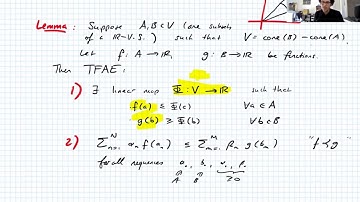 Lemma: Suppose A, B ⊂ V (are subsets
of a ℝ-V.S.) such that V = cone(B) - cone(A).
Let f: A → ℝ, g: B → ℝ be functions.
Then TFAE:
1) ∃ linear map Φ: V → ℝ such that
f(a) ≤ Φ(a) ∀a ∈ A
g(b) ≥ Φ(b) ∀b ∈ B
2) Σ_{n=1}^N α_n f(a_n) ≤ Σ_{m=1}^M β_m g(b_m)
for all sequences
A B ≥0